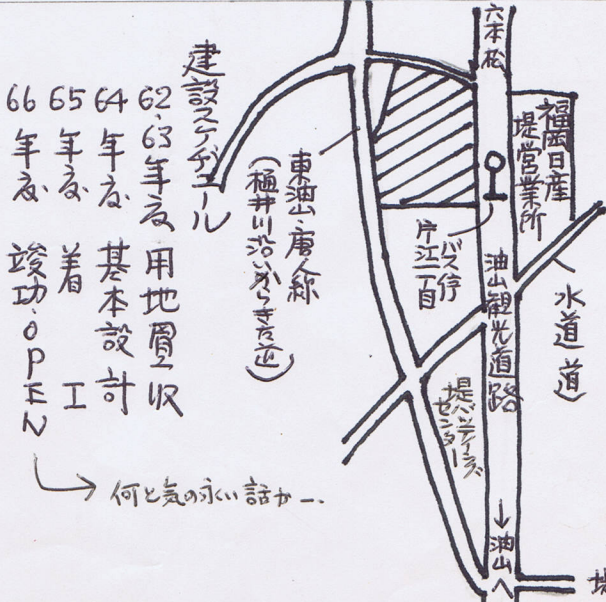 六本松
福岡日産
堤営業所
バス停
片江一丁目
油山観光道路
水道道
堤バッティング
センター
→油山へ
東油山・唐人線
(樋井川沿いからき右近)
建設スケヂュール
62・63年度 用地買収
64年度 基本設計
65年度 着工
66年度 竣功・OPEN
→何と気の永い話か―.